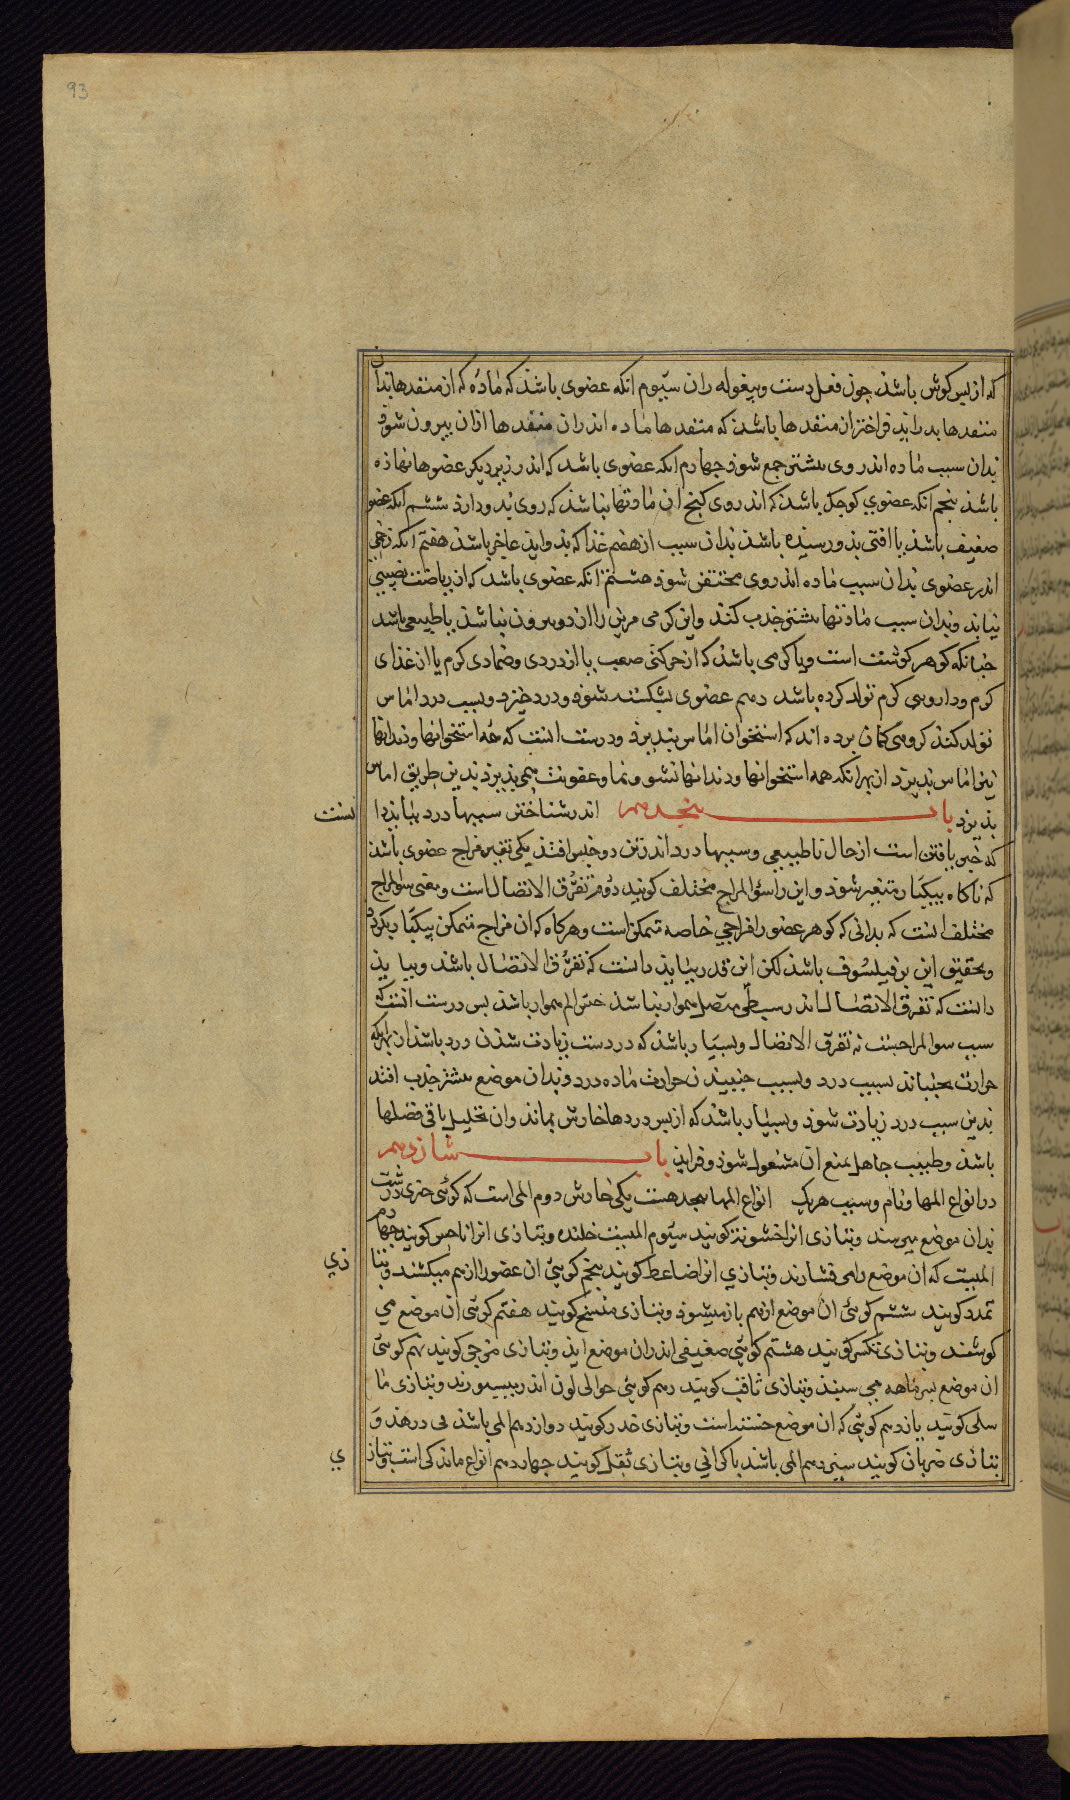 93
که از پس کوش باشذ چون فعل دست وبیغوله ران سیّوم انکه عضوی باشذ که ماده که از منفدها بدان
منفدها بدر اید فراختر ان منفدها باشذ که منفدها ماده اندران منفدها ازان بیرون شوذ
بدان سبب ماده اندروی بیشتر جمع شوذ چهارم انکه عضوی باشد که اندر زیر دیکر عضوها نهاذه
باشذ پنجم انکه عضوی کوچک باشذ که اندر روی کنج ان مادتها نباشذ که روی بذو دارد ششم انکه عضو
ضعیف باشذ یا افتی بذو رسیذه باشذ بدان سبب از هضم غذا که بذو اید عاجز باشذ هفتم انکه
اندر عضوی بدان سبب ماده اندروی محتقن شوذ هشتم انکه عضوی باشد که ان ریاضت نصیبی
نیابد وبدان سبب مادتها بیشتر جذب کند واین کرمی مزین را از دو بیرون نباشذ یا طبیعی باشد
چنانکه کوهر کوشت است ویا کرمی باشذ که از حرکتی صعب یا از دردی وضمادی کرم یا از غذای
کرم وداروی کرم تولد کرده باشد دهم عضوی شکسته شوذ ودرد خیزد وبسبب درد اماس
تولد کند کروهی کمان برده اند که استخوان اماس نپذیرذ ودرست انست که همه استخوانها ودندانها
نیز اماس پذیرد از بهر انکه همه استخوانها ودندانها نشو ونما وعفونت همی پذیرذ بدین طریق اماس
پذیرد باب پنجدهم اندر شناختن سببها درد بباید دانست
که خبر یافتن است از حال ناطبیعی وسببها درد اندر تن دو جنس افتد یکی تغیر مزاج عضوی باشذ
که ناکاه بیکبار متغیر شوذ واین را سوالمزاج مختلف کویند دوم تفرّق الاتصال است ومعنی سوالمزاج
مختلف انست که بدانی که کوهر عضو را مزاجی خاصه متمکن است وهرکاه که ان مزاج متمکن بیکبار بکردد
وتحقیق این بر فیلسوف باشذ لکن این قدر بباید دانست که تفرّق الاتصال باشد وبباید
دانست که تفرق الاتصال اندر سطحی متصل هموار نباشذ حس الم هموار باشذ پس درست انست که
سبب سوالمزاجست نه تفرّق الاتصال وبسیار باشذ که درد سبب زیادت شذن درد باشذ از بهر انکه
حرارت بجنباند بسبب درد وبسبب جنبیدن حرارت ماده درد وبدان موضع بیشتر جذب افتد
بدین سبب درد زیادت شوذ وبسیار باشذ که از پس دردها خارش بماند وان تحلیل باقی فضلها
باشذ وطبیب جاهل بمنع ان مشغول شوذ وفزاید باب شانزدهم
در انواع المها ونام وسبب هریک انواع المها هجده هست یکی خارش دوم المی است که کوئی چیزی درشت
بدان موضع میرسد وبتازی انرا خشونت کویند سیّوم المیست خلنده وبتازی انرا ناخس کویند چهارم
المیست که ان موضع را می فشارند وبتازی انرا ضاغط کویند پنجم کوئی ان عضو را ازهم میکشند وبتازی
تمدد کویند ششم کوئی ان موضع ازهم باز میشوذ وبتازی مفسخ کویند هفتم کوئی ان موضع می
کوبند وبتازی تکسر کویند هشتم کوئی ضعیفی اندران موضع اید وبتازی مرخی کویند نهم کوئی
ان موضع بسرماهه می سنبذ وبتازی ثاقب کویند دهم کوئی جوالی لون اندر میبرند وبتازی مسلی کویند
یازدهم کوئی که ان موضع خفته است وبتازی خدر کویند دوازدهم المی باشذ می درهذ و
بتازی ضربان کویند سیزدهم المی باشد با کرانی وبتازی ثقل کویند چهاردهم انواع ماندکی است وبتازی